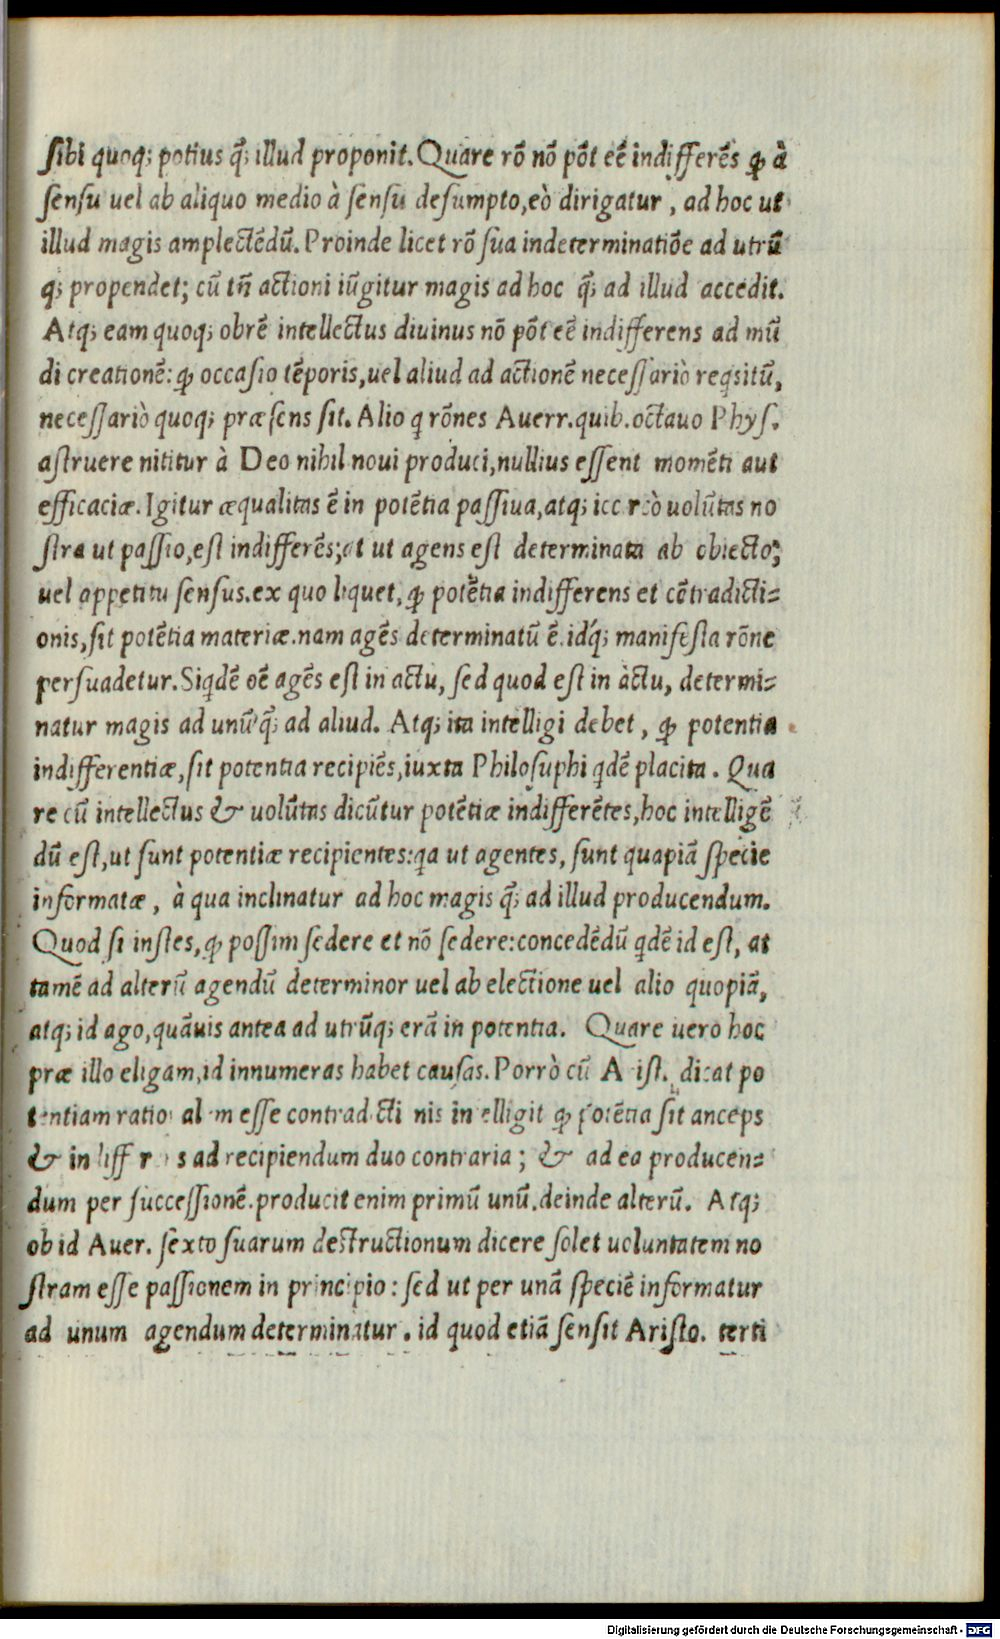 sibi quoq; potius q̃; illud proponit. Quare rõ nõ põt eẽ indifferẽs ꝙ à
sensu uel ab aliquo medio à sensu desumpto, eò dirigatur, ad hoc ut
illud magis amplectẽdũ. Proinde licet rõ sua indeterminatiõe ad utrũ
q; propendet; cũ tñ actioni iũgitur magis ad hoc q̃; ad illud accedit.
Atq; eam quoq; obrẽ intellectus diuinus nõ põt eẽ indifferens ad mũ
di creationẽ: ꝙ occasio tẽporis, uel aliud ad actionẽ necessariò reqsitũ,
necessariò quoq; præsens sit. Alio q rõnes Auerr. quib. octauo Phys.
astruere nititur à Deo nihil noui produci, nullius essent momẽti aut
efficaciæ. Igitur æqualitas ẽ in potẽtia passiua, atq; icc rcò uolũtas no
stra ut passio, est indifferẽs; at ut agens est determinata ab obiecto;
uel appetitu sensus. ex quo liquet, ꝙ potẽtia indifferens et cõtradicti=
onis, sit potẽtia materiæ. nam agẽs determinatũ ẽ. idq́; manifesta rõne
persuadetur. Siqdẽ oẽ agẽs est in actu, sed quod est in àctu, determi=
natur magis ad unũ q̃; ad aliud. Atq; ita intelligi debet, ꝙ potentia
indifferentiæ, sit potentia recipiẽs, iuxta Philosuphi qdẽ placita. Qua
re cũ intellectus & uolũtas dicũtur potẽtiæ indifferẽtes, hoc intelligẽ
dũ est, ut sunt potentiæ recipientes: qa ut agentes, sunt quapiã specie
informatæ, à qua inclinatur ad hoc magis q̃; ad illud producendum.
Quod si instes, ꝙ possim sedere et nõ sedere: concedẽdũ qdẽ id est, at
tamẽ ad alterũ agendũ determinor uel ab electione uel alio quopiã,
atq; id ago, quãuis antea ad utrũq; erã in potentia. Quare uero hoc
præ illo eligam, id innumeras habet causas. Porrò cũ A ist. dicat po
tentiam ratio al m esse contradicti nis in elligit ꝙ potẽtia sit anceps
& in diff r s ad recipiendum duo contraria; & ad ea producen=
dum per successionẽ. producit enim primũ unũ. deinde alterũ. Atq;
ob id Auer. sexto suarum destructionum dicere solet uoluntatem no
stram esse passionem in principio: sed ut per unã speciẽ informatur
ad unum agendum determinatur. id quod etiã sensit Aristo. terti
Digitalisierung gefördert durch die Deutsche Forschungsgemeinschaft - DFG